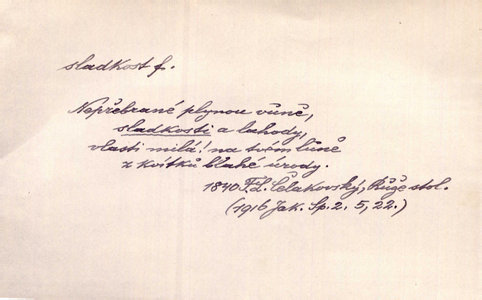 sladkost f.
Nepřebrané plynou vůně,
sladkosti a lahody,
vlasti milá! na tvém lůně
z kvítků blahé úrody.
1840 F. L. Čelakovský, Růže stol.
(1916 Jak. Sp. 2. 5, 22.)